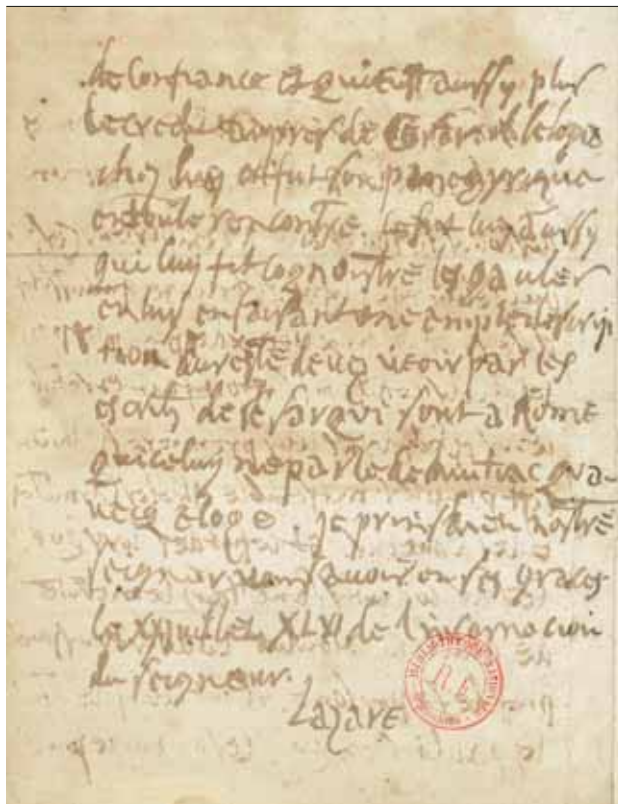 de confiance et qui eust aussy plus
de credit aupres de Cesar et le loga
chez luy et fut son panegyrique
en toute rencontre. Ce fut luy aussy
qui luy fit cognoistre les gaules
en luy en faisant une emple descrip
tion du reste de ucq ueoir par les
escrits de Cesar qui sont a Rome
quiceluy ne parle de muitiac qua
uecq eloge. je prins dieu nostre
seigneur uous auoir en ses graces
le XX juillet XLVI de l'incarnacion
du seigneur.
Lazare